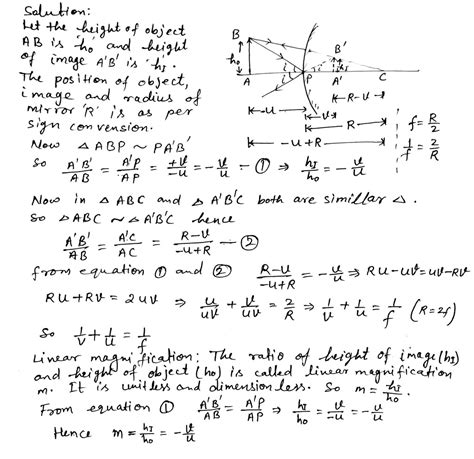 Solution:
Let the height of object
AB is 'ho' and height
of image A'B' is 'hI'.
The position of object,
image and radius of
mirror 'R' is as per
sign convension.
Now △ABP ~ PA'B'
So A'B'/AB = A'P/AP = +v/-u = -v/u — ① ⇒ hI/ho = -v/u
B
ho
A
i
P
B'
hI
A'
C
-u
v
R-v
R
-u+R
f = R/2
1/f = 2/R
Now in △ABC and △A'B'C both are simillar △.
So △ABC ~ △A'B'C hence
A'B'/AB = A'C/AC = R-v/-u+R — ②
from equation ① and ② R-v/-u+R = -v/u ⇒ Ru-uv=uv-Rv
Ru+Rv = 2uv ⇒ u/uv + v/uv = 2/R ⇒ 1/v + 1/u = 1/f (R=2f)
So 1/v + 1/u = 1/f
Linear magnification: The ratio of height of image (hI)
and height of object (ho) is called linear magnification
m. It is unitless and dimensionless. So m = hI/ho.
From equation ① A'B'/AB = A'P/AP ⇒ hI/ho = v/-u = -v/u
Hence m = hI/ho = -v/u